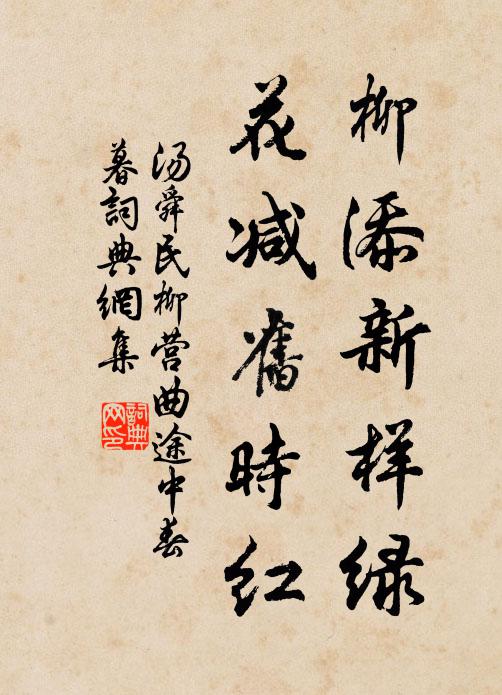 柳添新样绿
花减舊時红
汤舜民柳营曲途中春
暮詞典網集
詞典
网印